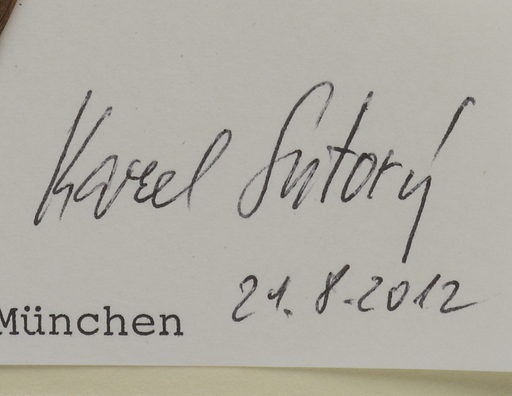 Karel Sutorý
21. 8. 2012
München